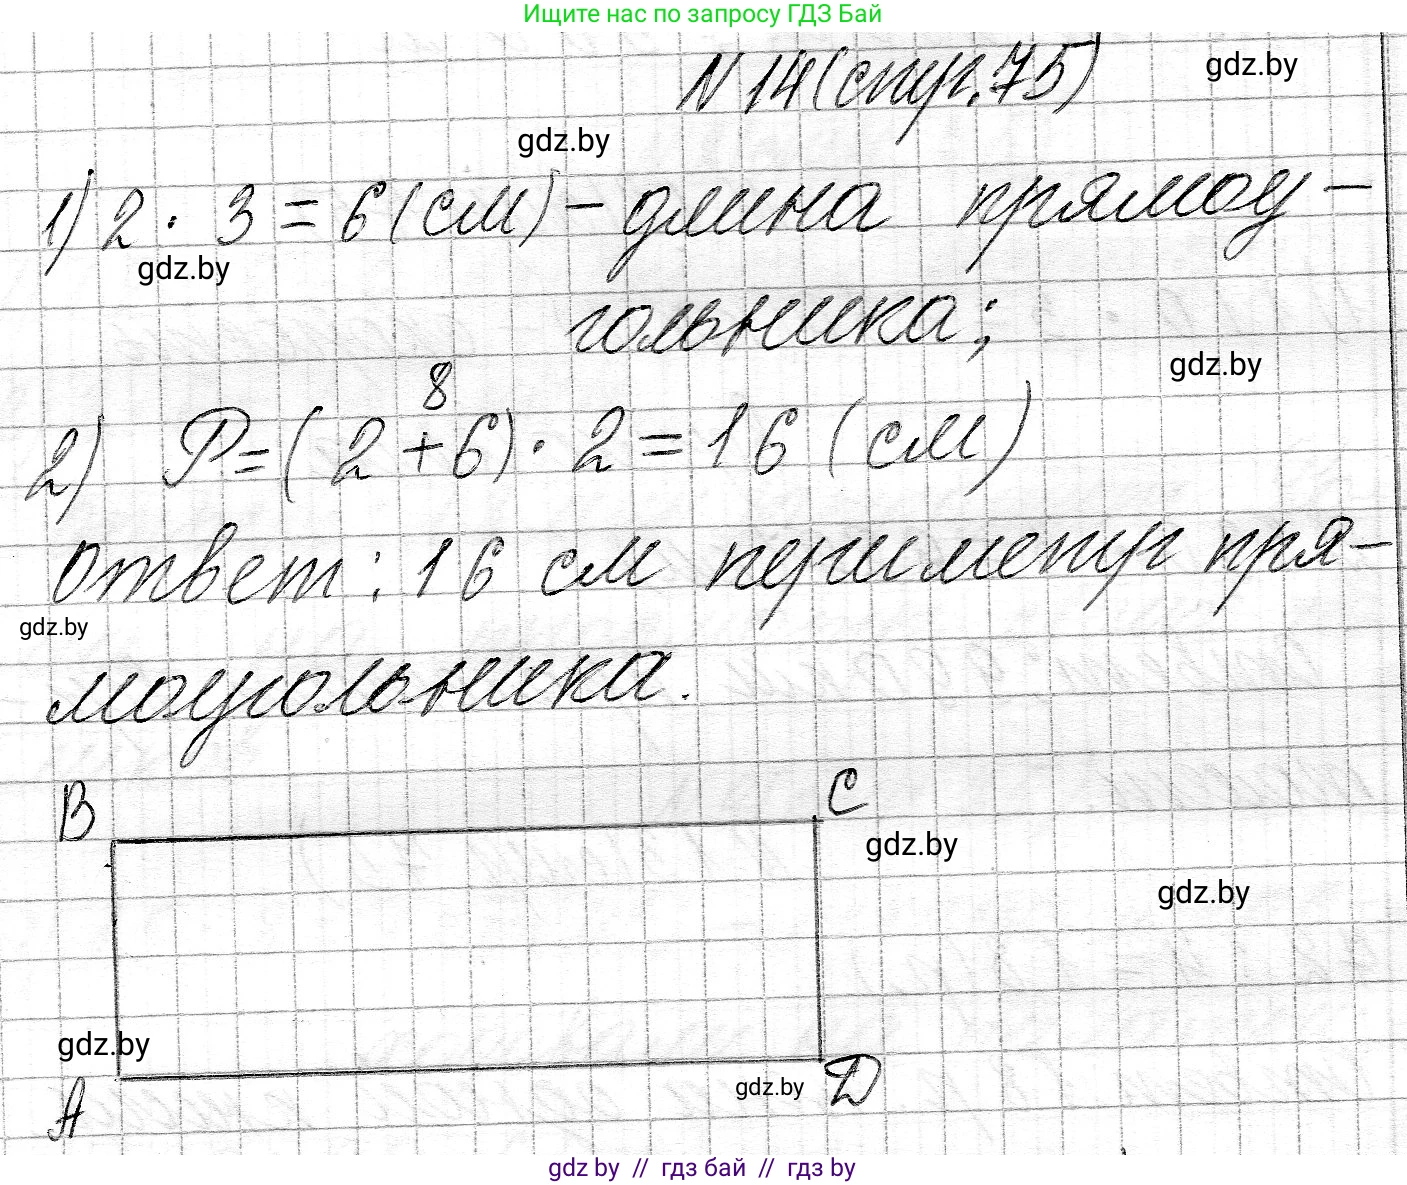 Ищите нас по запросу ГДЗ Бай
N 14 (стр. 75)
gdz.by
gdz.by
1) 2 · 3 = 6 (см) - длина прямоу-
gdz.by
гольника;
gdz.by
8
2) P = (2 + 6) · 2 = 16 (см)
Ответ: 16 см периметр пря-
gdz.by
моугольника.
B
C
gdz.by
gdz.by
gdz.by
gdz.by
A
D
gdz by // гдз бай // гдз by